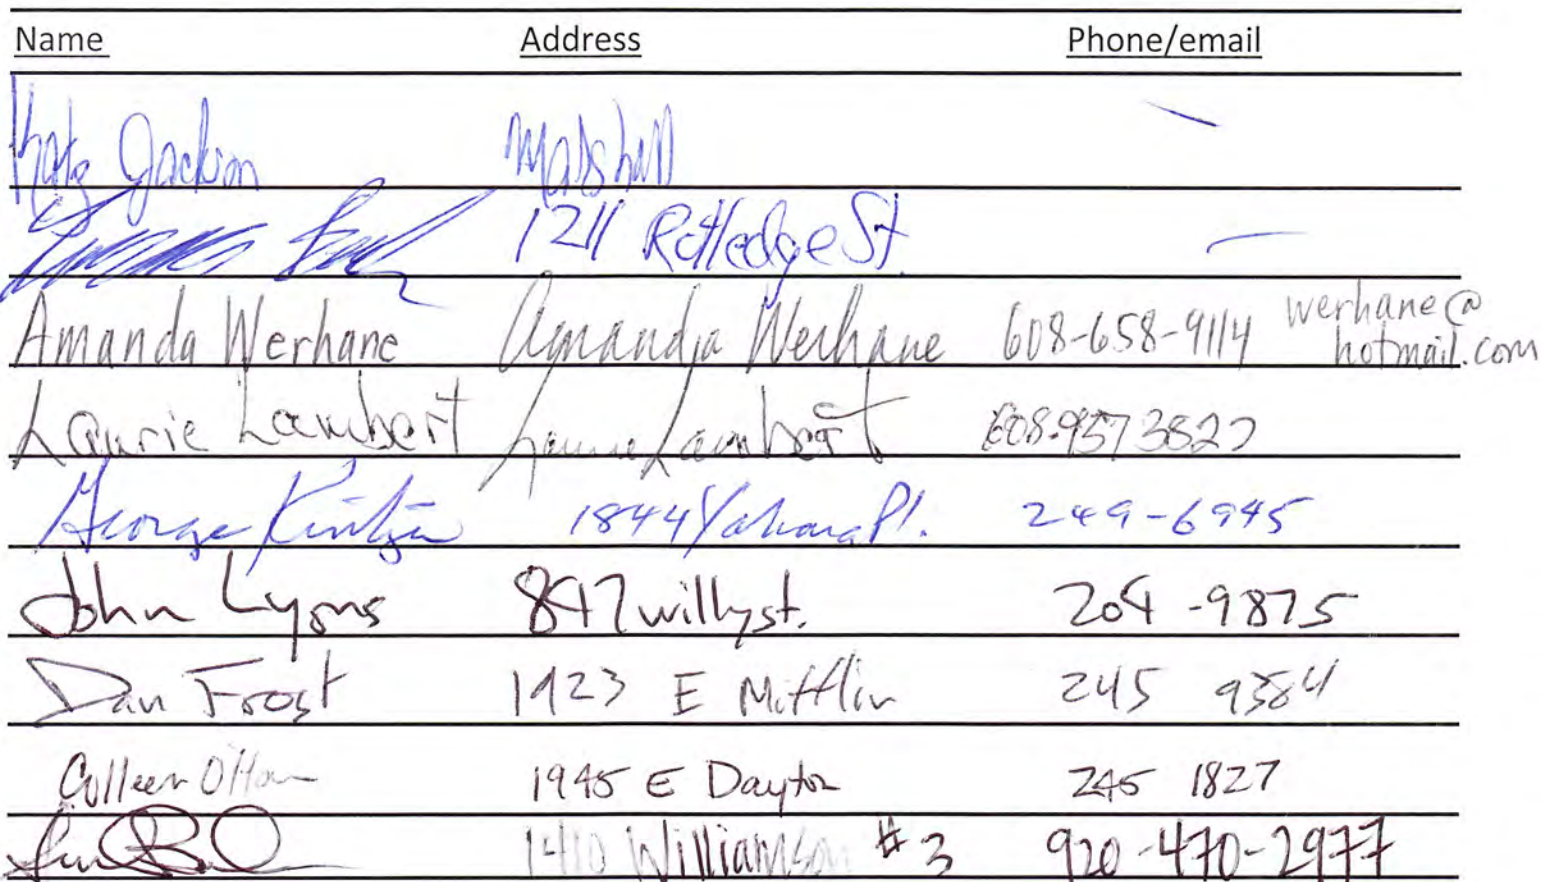 Name Address Phone/email
Jackson Marshall
1211 Rutledge St.
Amanda Werhane Amanda Werhane 608-658-9114 werhane@
hotmail.com
Laurie Lambert Laurie Lambert 608-957 3822
George 1844 Yahara Pl. 249-6945
John Lyons 847 willy st. 204-9875
Dan Frost 1923 E Mifflin 245 9384
Colleen 1945 E Dayton 245 1827
1410 Williamson #3 920-470-2977